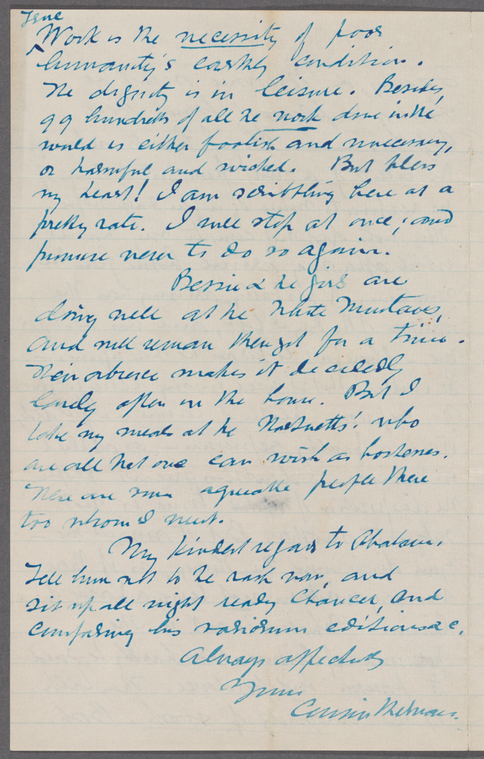 True
Work is the necessity of poor
humanity's earthly condition.
The dignity is in leisure. Besides,
99 hundreths of all the work done in the
world is either foolish and unnecessary,
or harmful and wicked. But bless
my heart! I am scribbling here at a
pretty rate. I will stop at once; and
promise never to do so again.
Bessie & the girls are
doing well at the White Mountains,
and will remain there yet for a time.
Their absence makes it decidedly
lonely often in the house. But I
take my meals at the who
are all that one can wish as hostesses.
There are some agreeable people there
too whom I meet.
My kindest regards to Abraham.
Tell him not to be rash now, and
sit up all night reading Chaucer, and
comparing his various editions &c.
Always affectly
Yours
Cousin Herman.